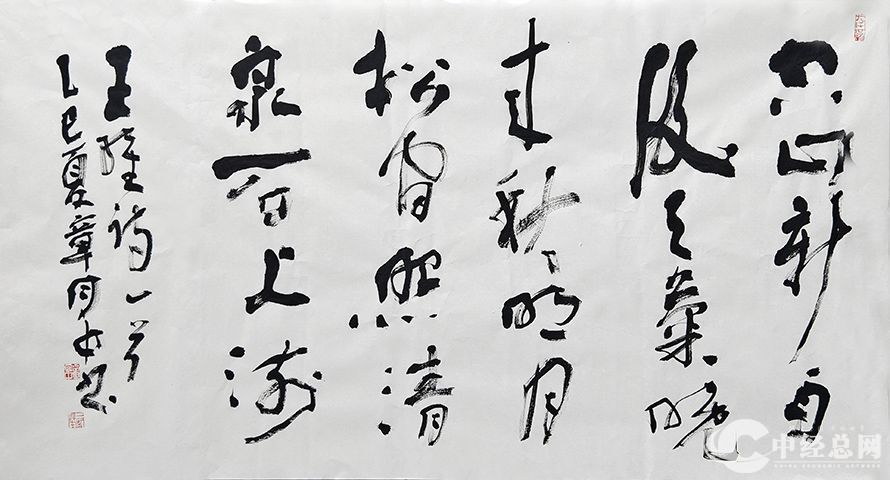 空山新雨
後天氣晚
来秋明月
松間照清
泉石上流
王維詩一首
乙巳夏章
中经总网